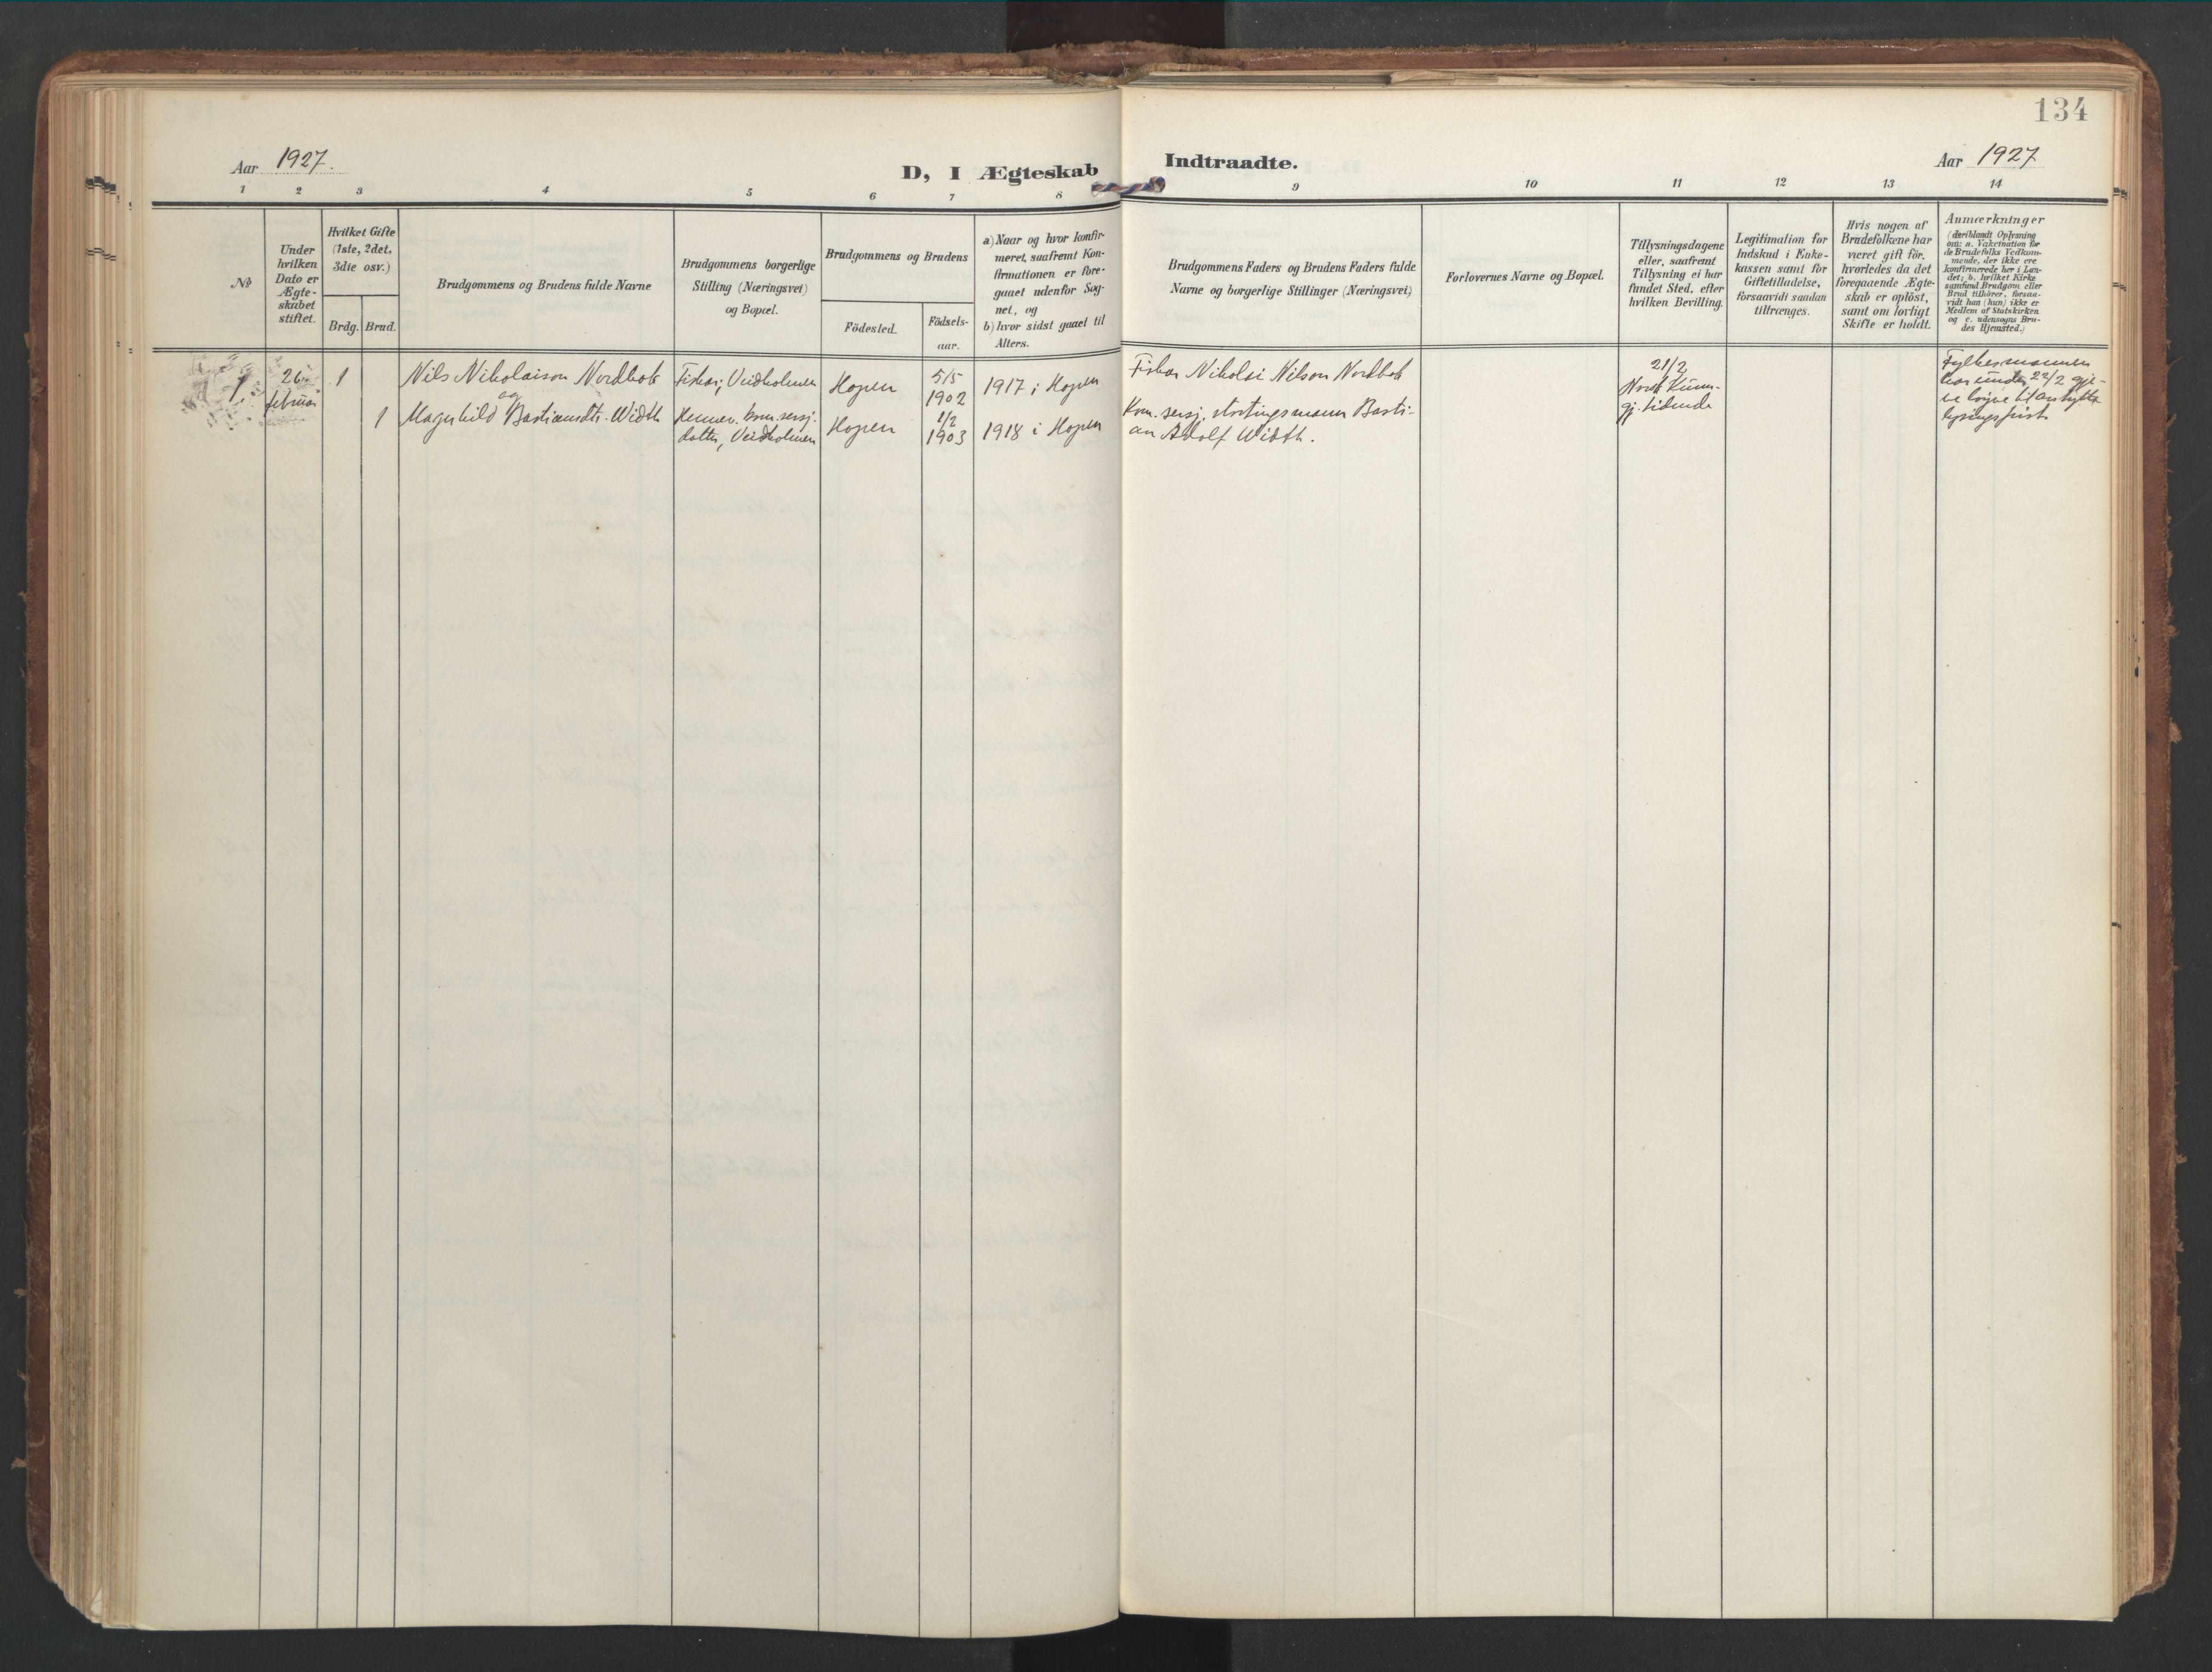 134
Aar 1927.
D, I Ægteskab
Indtraadte.
Aar 1927
1 2 3 4 5 6 7 8 9 10 11 12 13 14
№
Under
hvilken
Dato er
Ægte-
skabet
stiftet.
Hvilket Gifte
(1ste, 2det,
3die osv.)
Brdg. Brud.
Brudgommens og Brudens fulde Navne
Brudgommens borgerlige
Stilling (Næringsvei)
og Bopæl.
Brudgommens og Brudens
Födested.
Födsels-
aar.
a) Naar og hvor konfir-
meret, saafremt Kon-
firmationen er fore-
gaaet udenfor Sog-
net, og
b) hvor sidst gaaet til
Alters.
Brudgommens Faders og Brudens Faders fulde
Navne og borgerlige Stillinger (Næringsvei)
Forlovernes Navne og Bopæl.
Tillysningsdagene
eller, saafremt
Tillysning ei har
fundet Sted, efter
hvilken Bevilling.
Legitimation for
Indskud i Enke-
kassen samt for
Giftetilladelse,
forsaavidt saadan
tiltrænges.
Hvis nogen af
Brudefolkene har
været gift för,
hvorledes da det
foregaaende Ægte-
skab er oplöst,
samt om lovligt
Skifte er holdt.
Anmærkninger
(deriblandt Oplysning
om: a. Vakcination for
de Brudefolks Vedkom-
mende, der ikke ere
konfirmerede her i Lan-
det; b. hvilket Kirke
samfund Brudgom eller
Brud tilhörer, forsaa-
vidt han (hun) ikke er
Medlem af Statskirken
og c. udensogns Bru-
des Hjemsted.)
1.
26.
februar
1
Nils Nikolaison Nordbotn
og
1
Magnhild Bastiansdtr. Width
Fiskar, Veidholmen
Hopen
5/5
1902
1917 i Hopen
Heimev. kom.sersj.
datter, Veidholmen
Hopen
1/2
1903
1918 i Hopen
Fiskar Nikolai Nilson Nordbotn
Kom. sersj. stortingsmann Basti-
an Adolf Width.
21/2
Norsk Kunn-
gj. tidende
Fylkesmannen
har under 22/2 gje-
ve løyve til
lysingsfrist